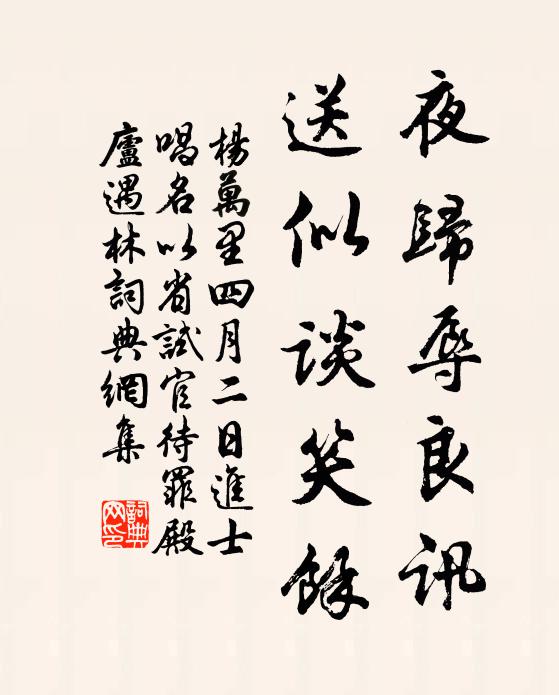 夜歸辱良訊
送似談笑餘
楊萬里四月二日進士
唱名以省試官待罪殿
廬遇林詞典網集
詞典網印